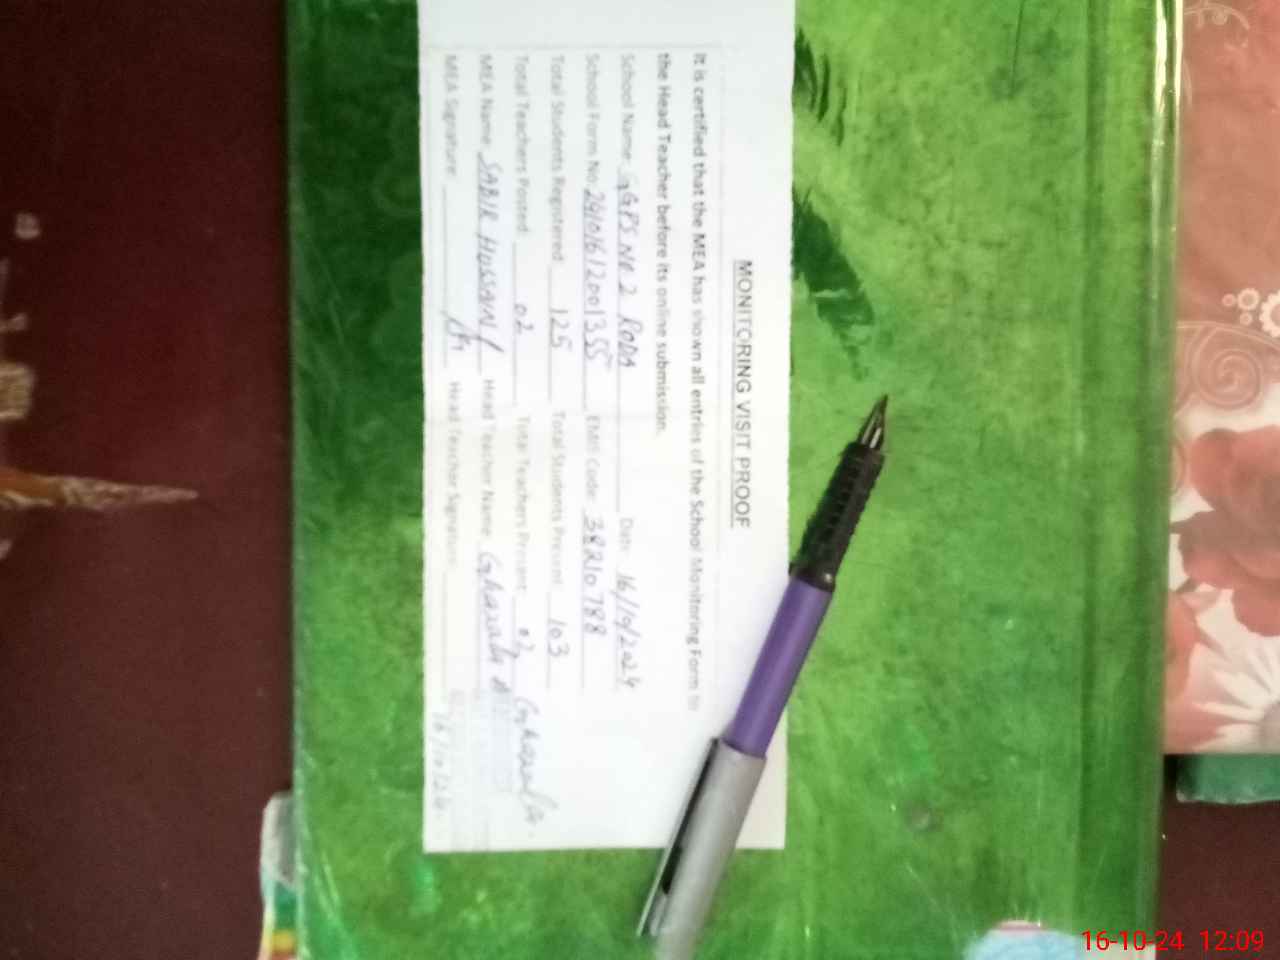 MONITORING VISIT PROOF
It is certified that the MEA has shown all entries of the School Monitoring Form to
the Head Teacher before its online submission.
School Name GGPS NO 2 RODA Date 16/10/2024
School Form No 29101612001355 EMIS Code 38210788
Total Students Registered 125 Total Students Present 103
Total Teachers Posted 02 Total Teachers Present 02
MEA Name SABIR HUSSAIN Head Teacher Name
MEA Signature Head Teacher Signature
16/10/24
16-10-24 12:09